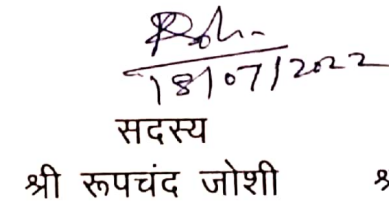 18/07/2022
सदस्य
श्री रूपचंद जोशी